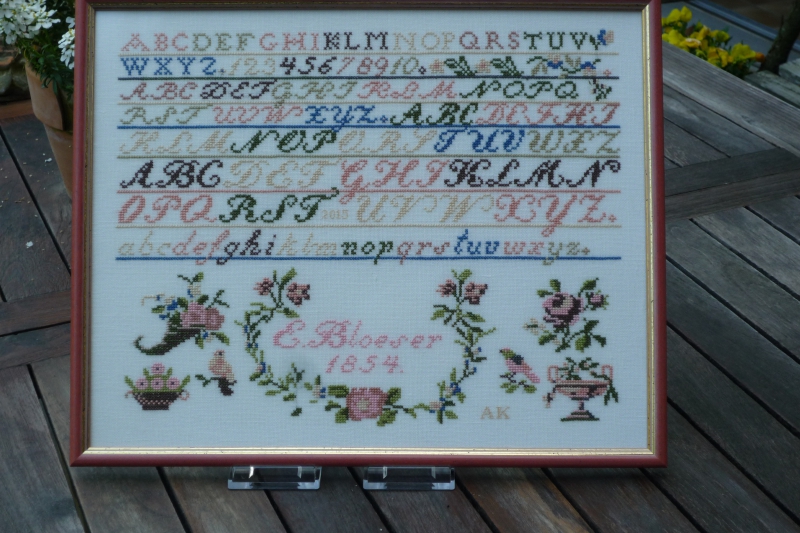 ABCDEFGHIKLMNOPQRSTUVW
WXYZ. 12345678910.
ABCDEFGHIKLMNOPQ
RSTUVWXYZ.ABCDEFGHI
KLMNOPQRSTUVWXZ
ABCDEFGHIKLMNN
OPQRST 2015 UVWXYZ.
abcdefghiklmnopqrstuvwxyz.
E. Bloeser
1854.
AK